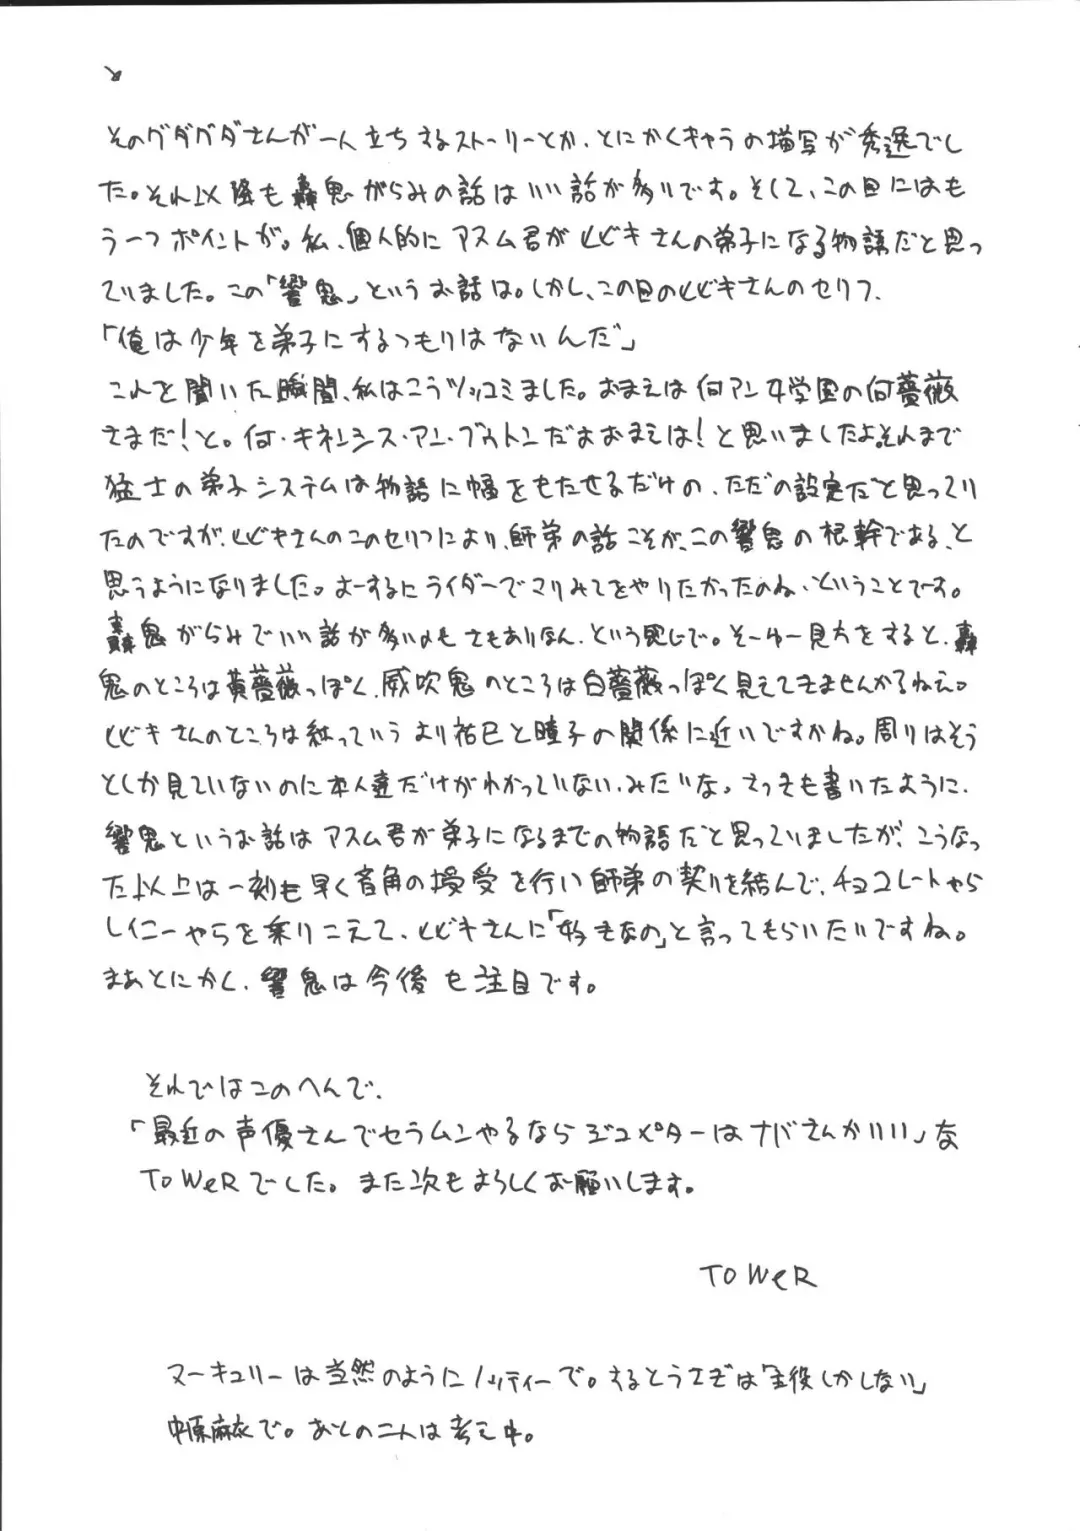 そのグダグダさんが一人立ちするストーリーとか、とにかくキャラの描写が秀逸でし
た。それ以降も轟鬼がらみの話はいい話が多いです。そして、この日にはも
う一つポイントが。私、個人的にアスム君がヒビキさんの弟子になる物語だと思っ
ていました。この「響鬼」というお話は。しかし、この日のヒビキさんのセリフ、
「俺は少年を弟子にするつもりはないんだ」
これを聞いた瞬間、私はこうツッコミました。おまえは何アン女学園の何薔薇
さまだ!と。何・キネンシス・アン・ブゥトンだよおまえは!と思いましたよ。それまで
猛士の弟子システムは物語に幅をもたせるだけの、ただの設定だと思ってい
たのですが、ヒビキさんのこのセリフにより、師弟の話こそが、この響鬼の根幹である、と
思うようになりました。よーするにライダーでマリみてをやりたかったのね、ということです。
轟鬼がらみでいい話が多いのもさもありなん、という感じで。そーゆー見方をすると、轟
鬼のところは黄薔薇っぽく、威吹鬼のところは白薔薇っぽく見えてきませんかるねえ。
ヒビキさんのところは紅っていうより祐巳と瞳子の関係に近いですかね。周りはそう
としか見ていないのに本人達だけがわかっていない、みたいな。さっきも書いたように、
響鬼というお話はアスム君が弟子になるまでの物語だと思っていましたが、こうなっ
た以上は一刻も早く音角の授受を行い師弟の契りを結んで、チョコレートやら
レイニーやらを乗りこえて、ヒビキさんに「好きなの」と言ってもらいたいですね。
まあとにかく、響鬼は今後も注目です。
それではこのへんで、
「最近の声優さんでセラムンやるならジュピターはナバさんがいい」な
ToWeRでした。また次もよろしくお願いします。
ToWeR
マーキュリーは当然のようにノッティーで。するとうさぎは「主役しかしない」
中原麻衣で。あとの二人は考え中。